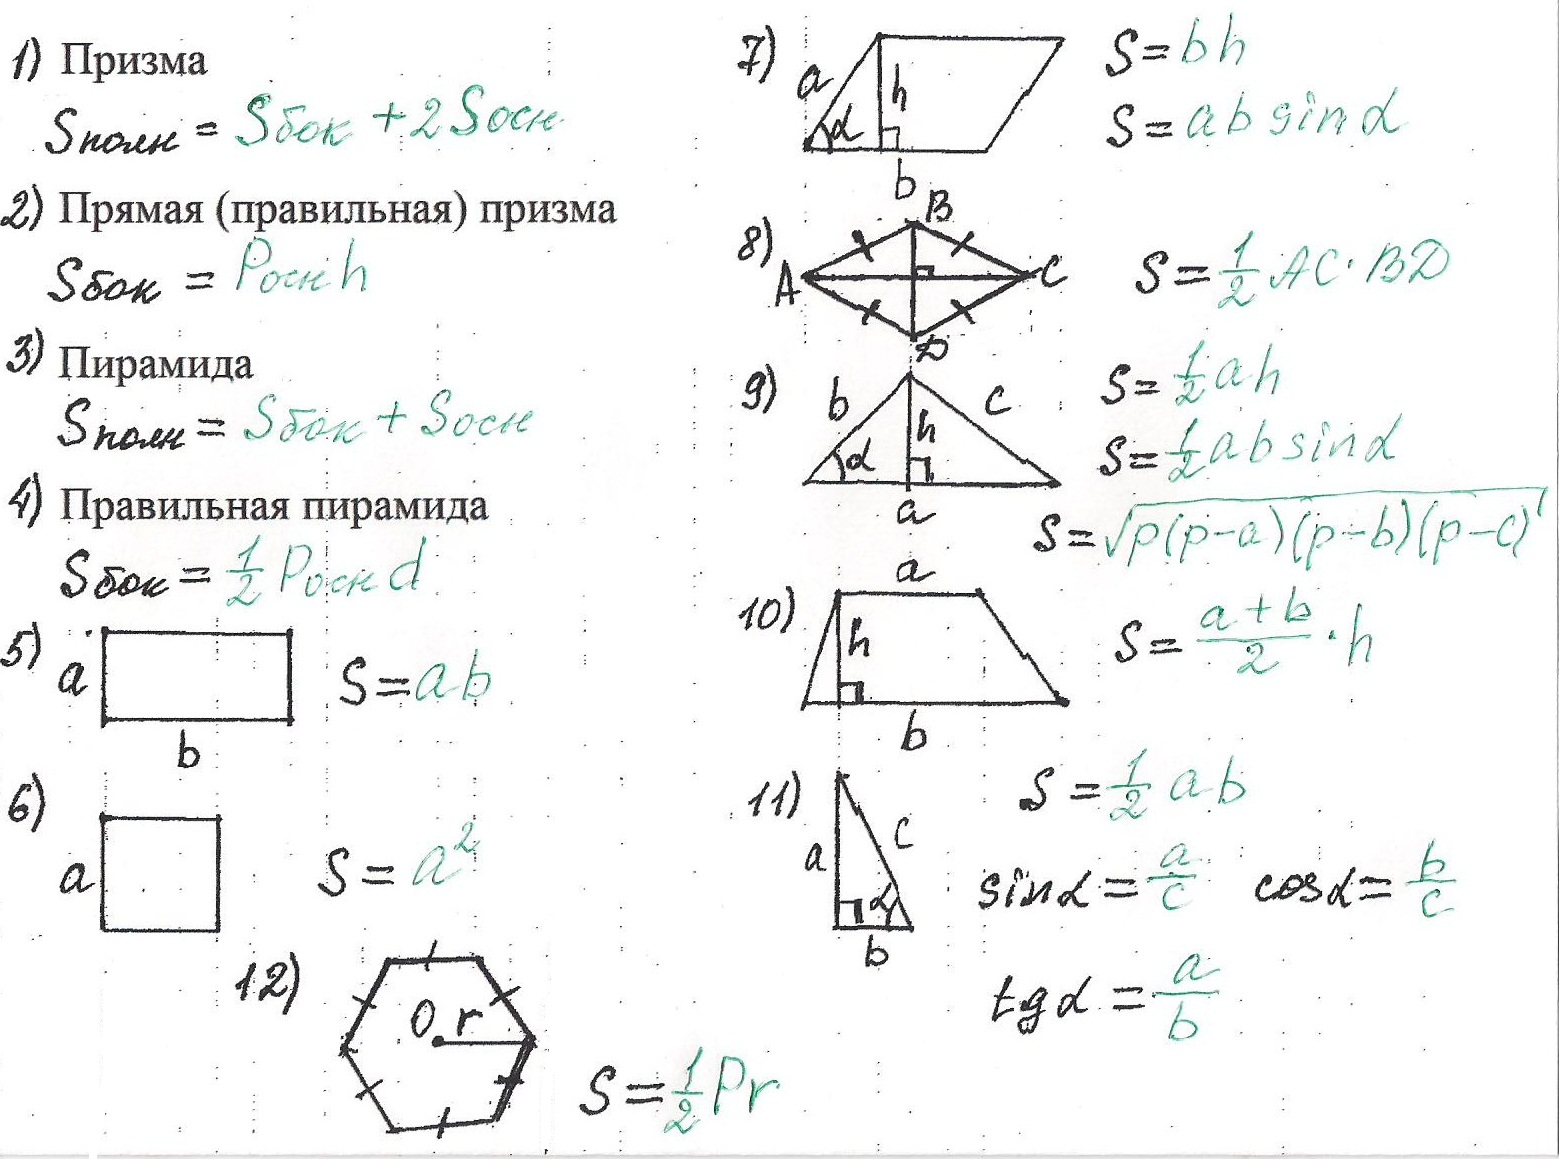 1) Призма
Sполн = Sбок + 2Sосн
2) Прямая (правильная) призма
Sбок = Pосн h
3) Пирамида
Sполн = Sбок + Sосн
4) Правильная пирамида
Sбок = 1/2 Pосн d
5) a b S = ab
6) a S = a²
7) a h α b
S = bh
S = ab sin α
8) A B C D S = 1/2 AC · BD
9) b c h α a
S = 1/2 ah
S = 1/2 ab sin α
S = √p(p-a)(p-b)(p-c)
10) a h b S = a+b/2 · h
11) a c α b
S = 1/2 ab
sin α = a/c cos α = b/c
tg α = a/b
12) O r S = 1/2 Pr